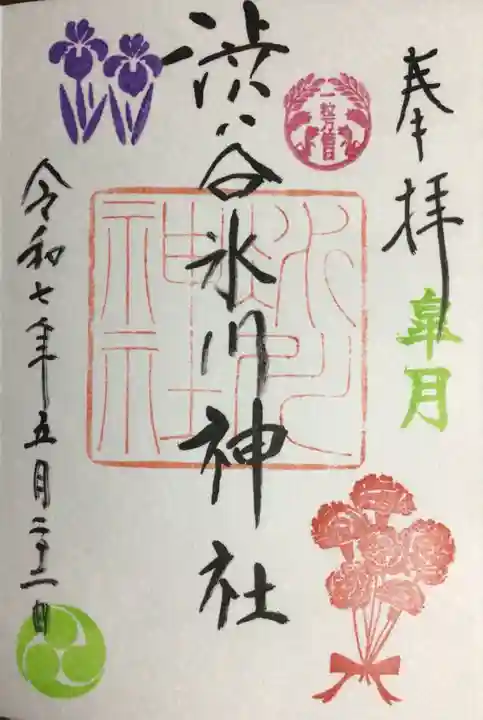 奉拝
皐月
一粒万倍日
渋谷氷川神社
氷川神社
令和七年五月二十二日